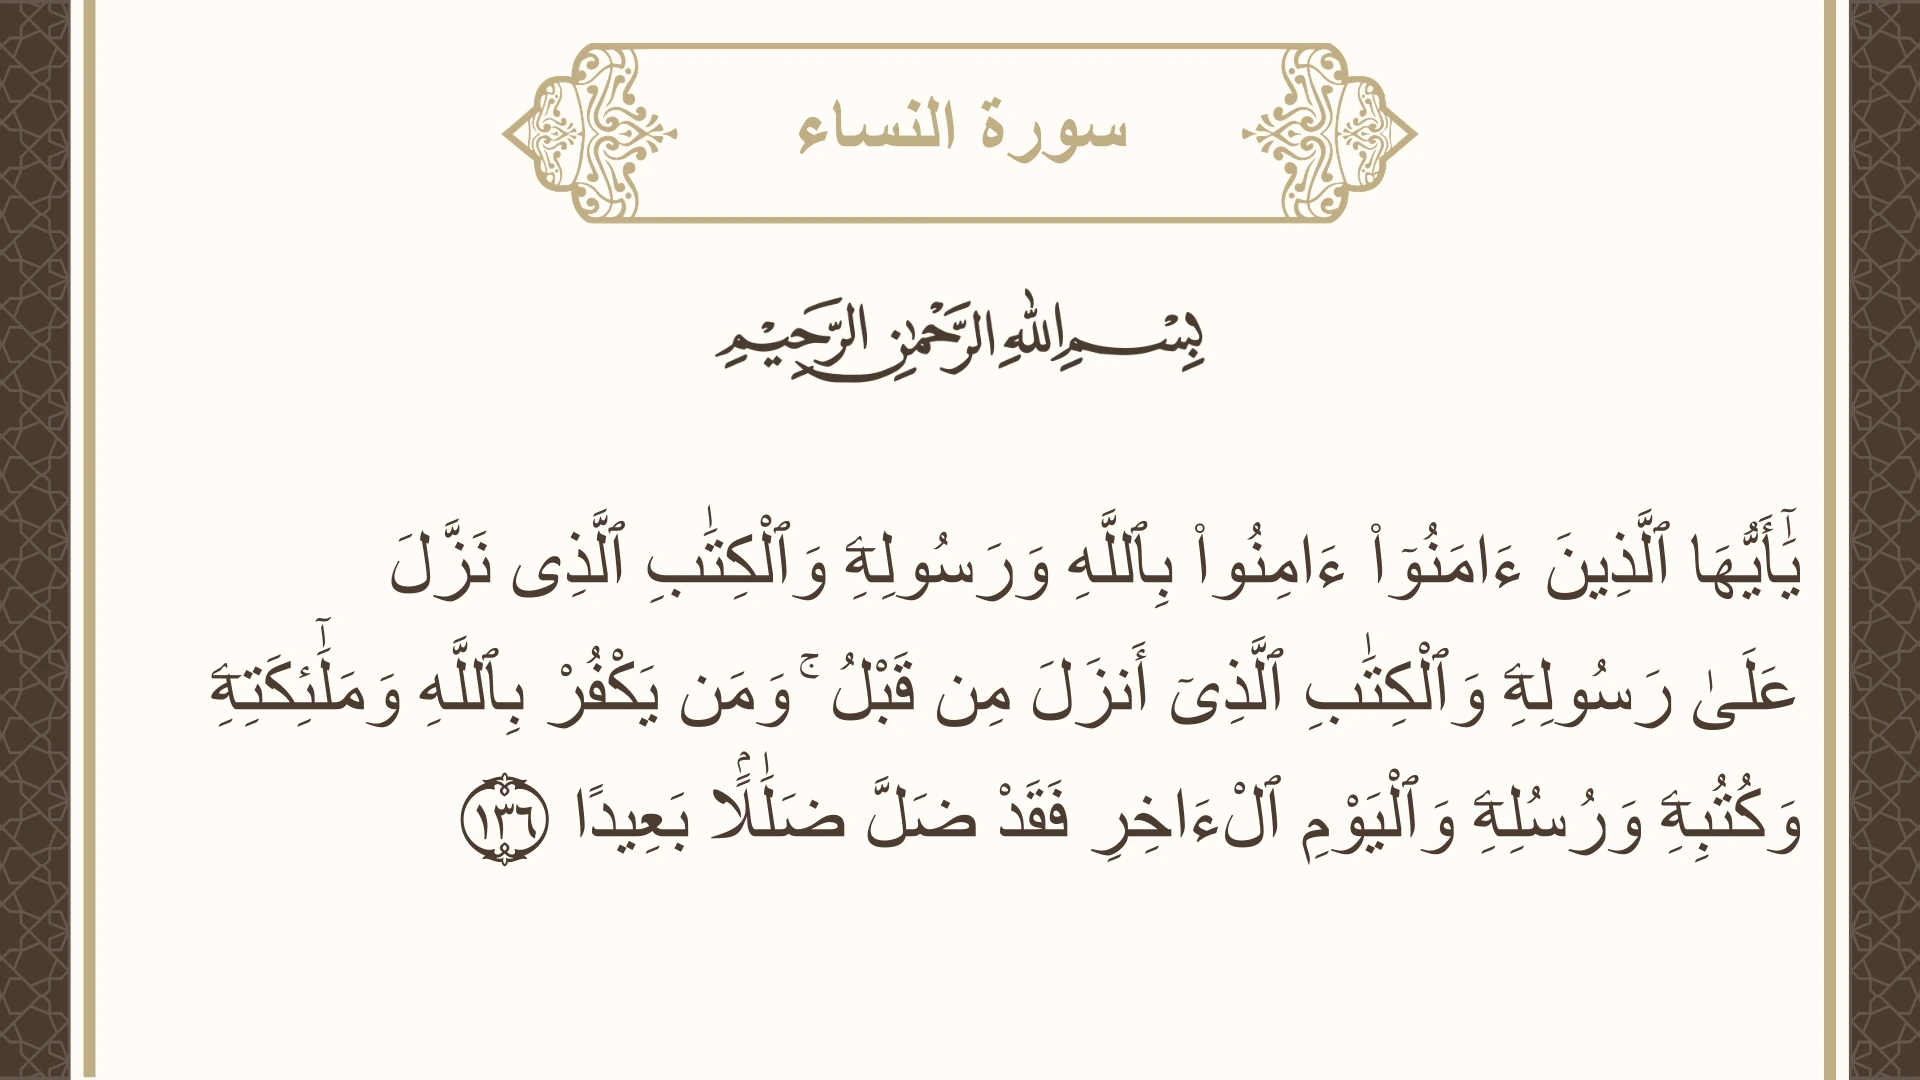 سورة النساء
بِسْمِ اللهِ الرَّحْمٰنِ الرَّحِيْمِ
يَٰٓأَيُّهَا ٱلَّذِينَ ءَامَنُوٓا۟ ءَامِنُوا۟ بِٱللَّهِ وَرَسُولِهِۦ وَٱلْكِتَٰبِ ٱلَّذِى نَزَّلَ
عَلَىٰ رَسُولِهِۦ وَٱلْكِتَٰبِ ٱلَّذِىٓ أَنزَلَ مِن قَبْلُ ۚ وَمَن يَكْفُرْ بِٱللَّهِ وَمَلَٰٓئِكَتِهِۦ
وَكُتُبِهِۦ وَرُسُلِهِۦ وَٱلْيَوْمِ ٱلْءَاخِرِ فَقَدْ ضَلَّ ضَلَٰلًۢا بَعِيدًا ١٣٦